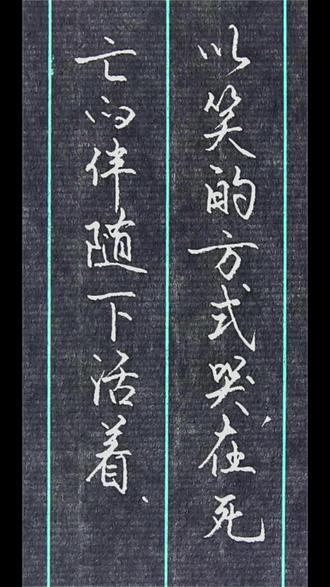 以笑的方式哭在死
亡的伴随下活着、